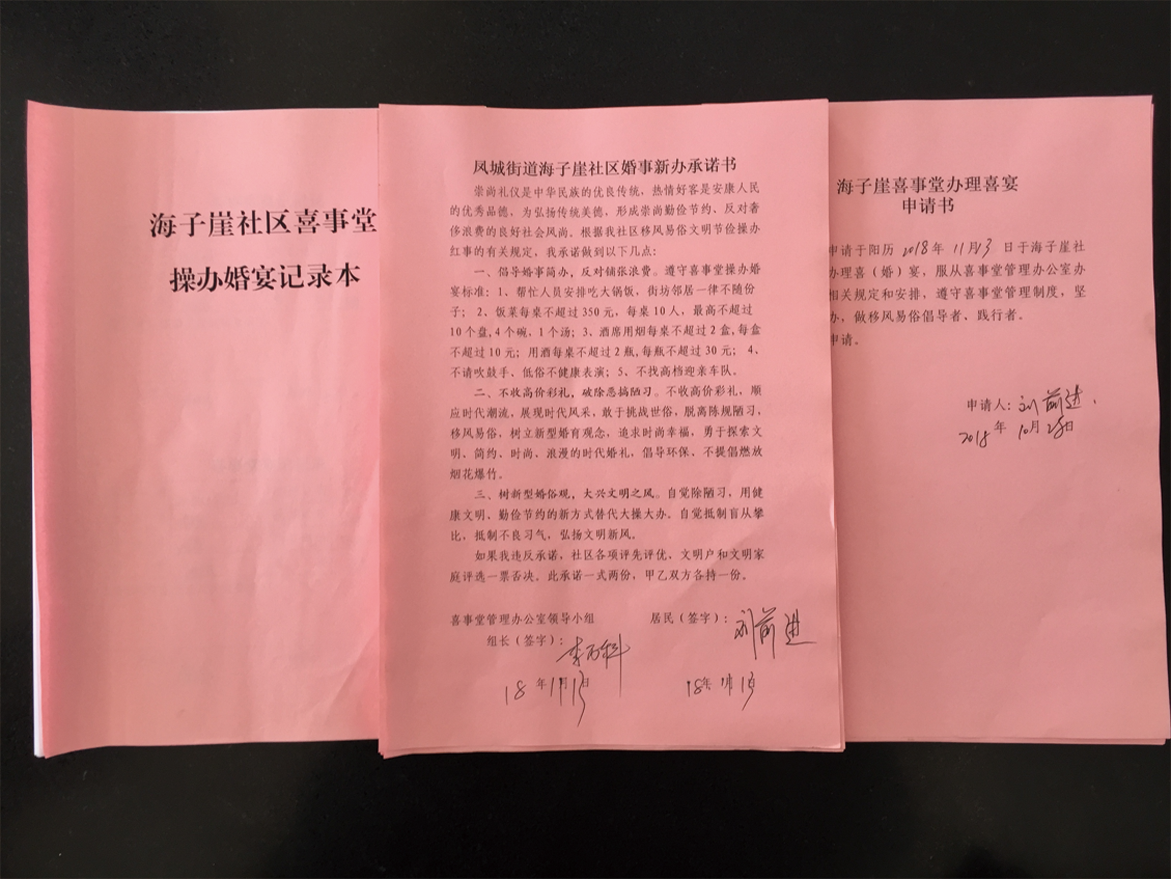 海子崖社区喜事堂
操办婚宴记录本
凤城街道海子崖社区婚事新办承诺书
崇尚礼仪是中华民族的优良传统，热情好客是安康人民
的优秀品德，为弘扬传统美德，形成崇尚勤俭节约、反对奢
侈浪费的良好社会风尚。根据我社区移风易俗文明节俭操办
红事的有关规定，我承诺做到以下几点：
一、倡导婚事简办，反对铺张浪费。遵守喜事堂操办婚
宴标准：1、帮忙人员安排吃大锅饭，街坊邻居一律不随份
子； 2、饭菜每桌不超过350元，每桌10人，最高不超过
10个盘,4个碗，1个汤；3、酒席用烟每桌不超过2盒,每盒
不超过10元；用酒每桌不超过2瓶,每瓶不超过30元； 4、
不请吹鼓手、低俗不健康表演；5、不找高档迎亲车队。
二、不收高价彩礼，破除恶搞陋习。不收高价彩礼，顺
应时代潮流，展现时代风采，敢于挑战世俗，脱离陈规陋习，
移风易俗，树立新型婚育观念，追求时尚幸福，勇于探索文
明、简约、时尚、浪漫的时代婚礼，倡导环保，不提倡燃放
烟花爆竹。
三、树新型婚俗观，大兴文明之风。自觉除陋习，用健
康文明、勤俭节约的新方式替代大操大办，自觉抵制盲从攀
比，抵制不良习气，弘扬文明新风。
如果我违反承诺，社区各项评先评优，文明户和文明家
庭评选一票否决。此承诺一式两份，甲乙双方各持一份。
喜事堂管理办公室领导小组
组长（签字）：
18年11月13日
居民（签字）：刘前进
18年11月13日
海子崖喜事堂办理喜宴
申请书
申请于阳历2018年11月13日于海子崖社
办理喜（婚）宴，服从喜事堂管理办公室办
相关规定和安排，遵守喜事堂管理制度，坚
办，做移风易俗倡导者、践行者。
申请。
申请人：刘前进
2018年10月28日